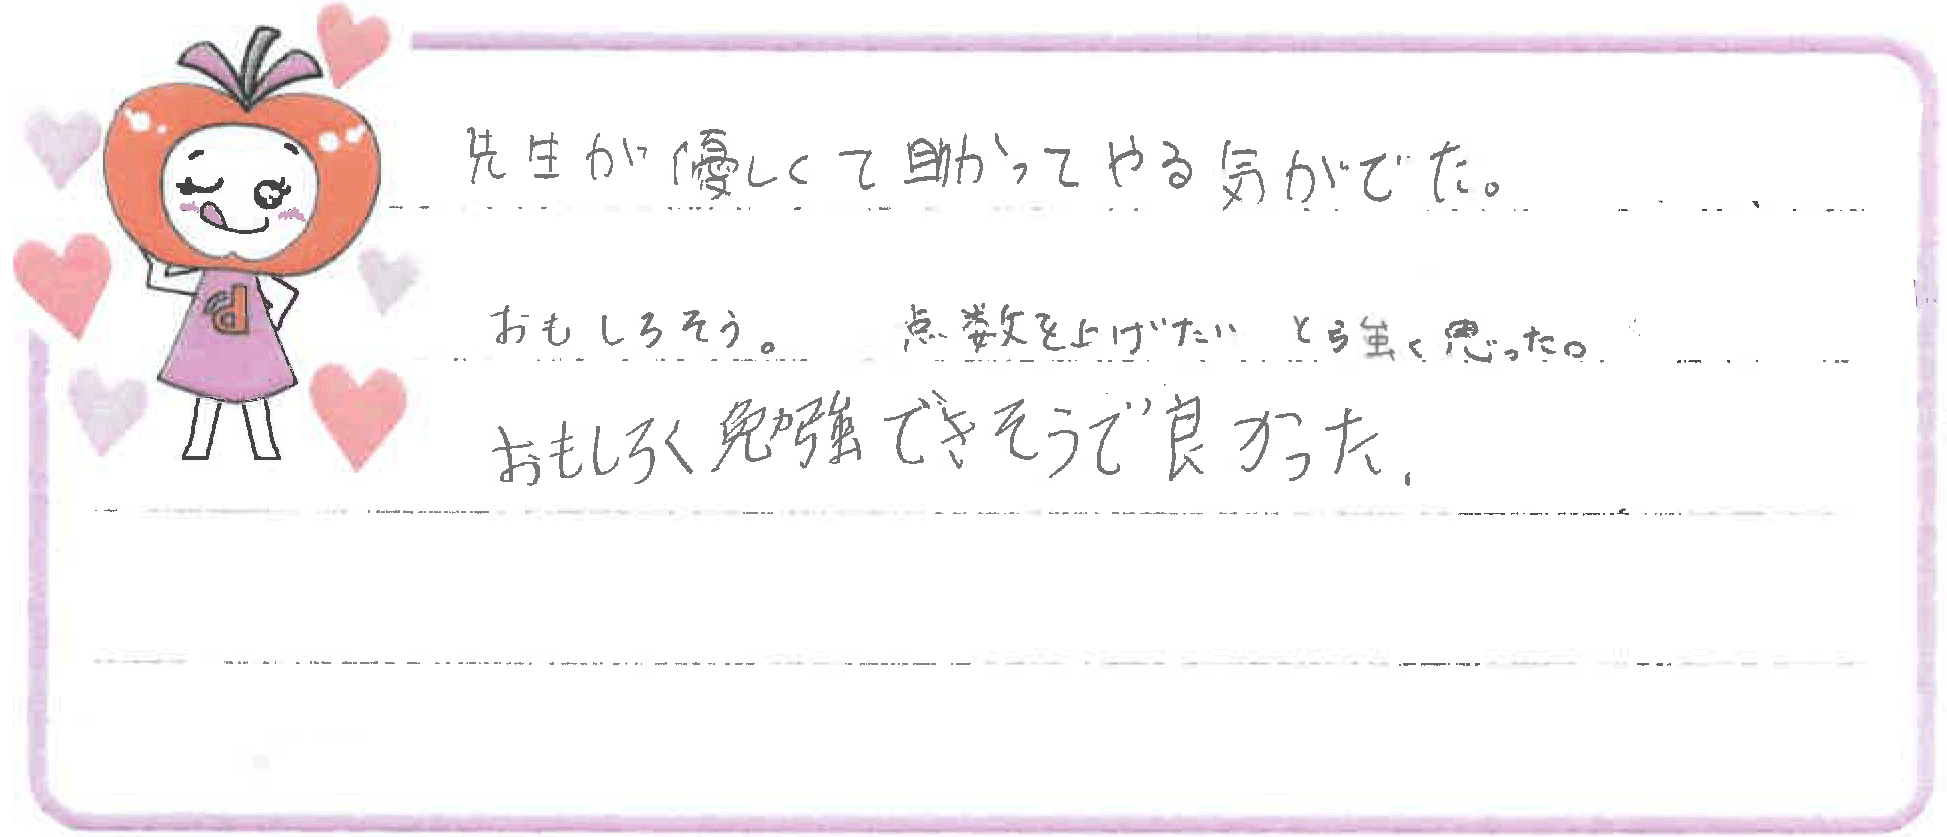 先生が優しくて助かってやる気がでた。
おもしろそう。 点数を上げたい と強く思った。
おもしろく勉強できそうで良かった。